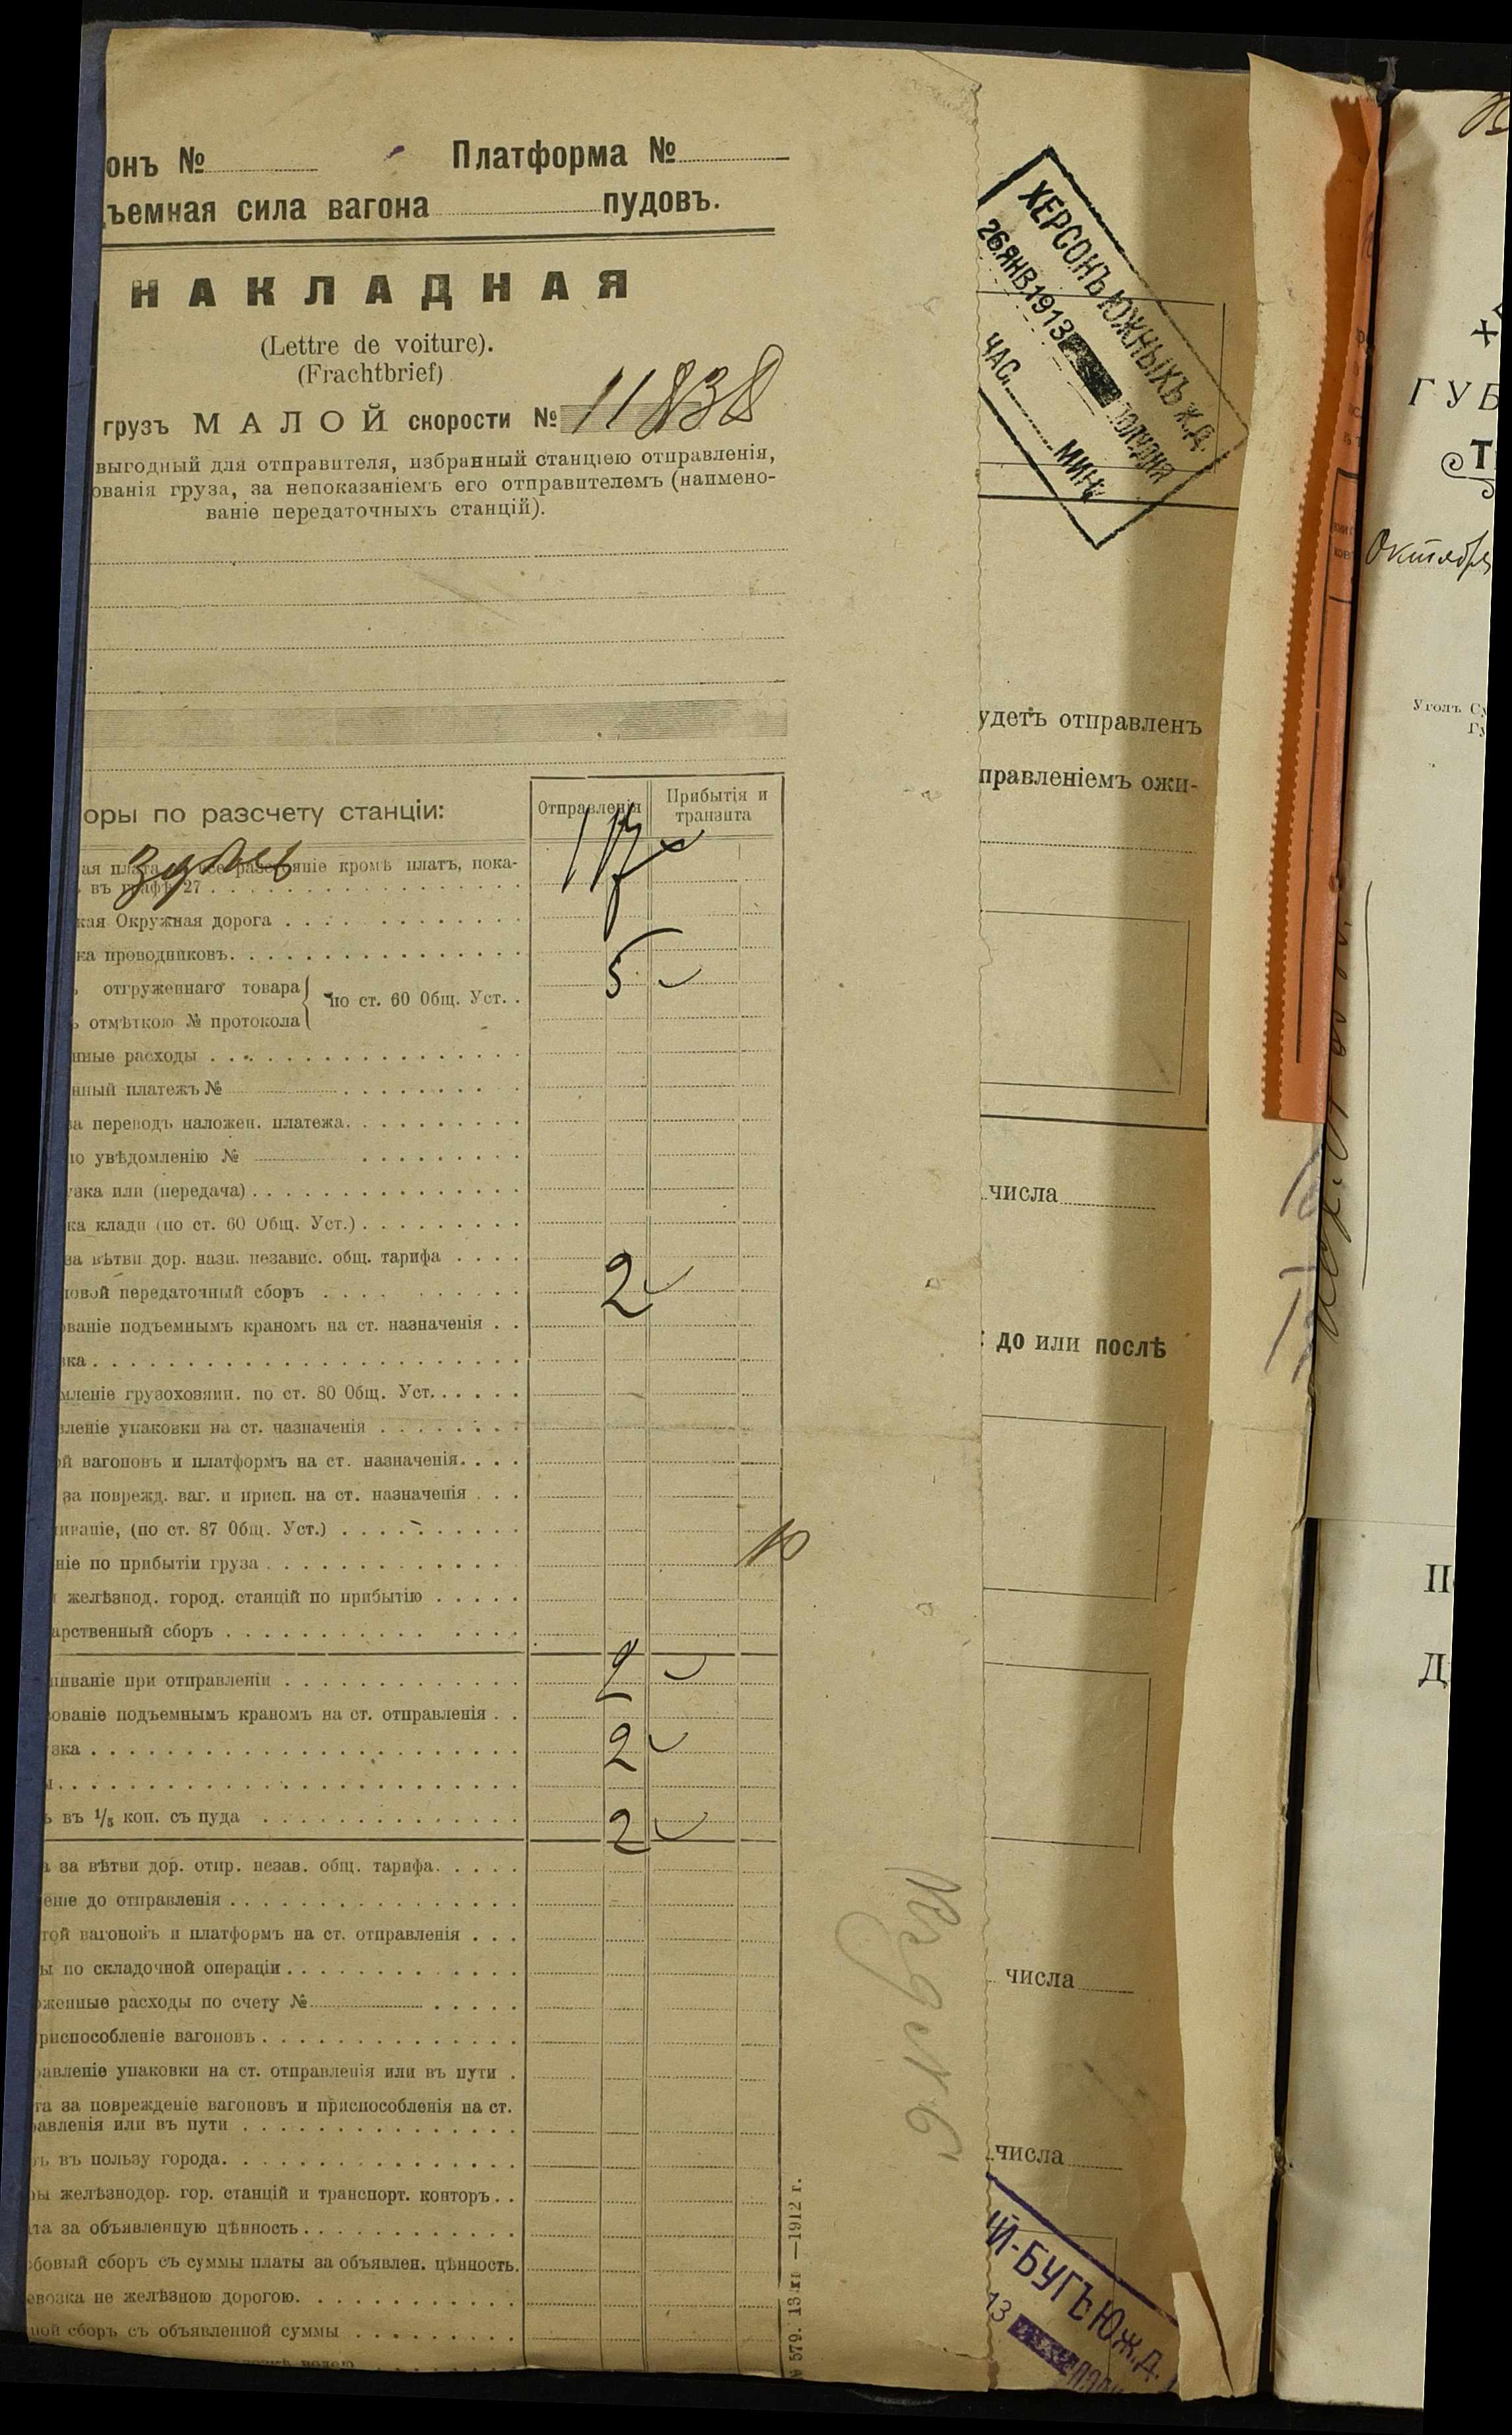 онъ № Платформа №
ъемная сила вагона пудовъ.
НАКЛАДНАЯ
(Lettre de voiture).
(Frachtbrief)
грузъ МАЛОЙ скорости № 11838
выгодный для отправителя, избранный станціею отправленія,
ованія груза, за непоказаніемъ его отправителемъ (наимено-
ваніе передаточныхъ станцій).
оры по разсчету станціи:
Отправленія
Прибытія и транзита
ая плата разстояніе кромѣ платъ, пока-
въ графѣ 27
кая Окружная дорога
ка проводниковъ.
отгруженнаго товара
по ст. 60 Общ. Уст.
ъ отмѣткою № протокола
5
нные расходы
нный платежъ №
за переводъ наложен. платежа.
по увѣдомленію №
узка или (передача)
ка клади (по ст. 60 Общ. Уст.)
за вѣтви дор. назн. независ. общ. тарифа
овой передаточный сборъ 2
ованіе подъемнымъ краномъ на ст. назначенія
зка
мленіе грузохозяин. по ст. 80 Общ. Уст.
вленіе упаковки на ст. назначенія
ой вагоновъ и платформъ на ст. назначенія.
за поврежд. ваг. и присп. на ст. назначенія
иваніе, (по ст. 87 Общ. Уст.)
ніе по прибытіи груза 10
желѣзнод. город. станцій по прибытію
арственный сборъ
шиваніе при отправленіи
ованіе подъемнымъ краномъ на ст. отправленія
зка 2
ы
ъ въ 1/5 коп. съ пуда 2
а за вѣтви дор. отпр. незав. общ. тарифа.
еніе до отправленія
той вагоновъ и платформъ на ст. отправленія
ы по складочной операціи
оженные расходы по счету №
риспособленіе вагоновъ
равленіе упаковки на ст. отправленія или въ пути
та за поврежденіе вагоновъ и приспособленія на ст.
равленія или въ пути
ъ въ пользу города.
ры желѣзнодор. гор. станцій и транспорт. конторъ
ата за объявленную цѣнность
бовый сборъ съ суммы платы за объявлен. цѣнность.
евозка не желѣзною дорогою.
ной сборъ съ объявленной суммы
№ 579. 13 xi —1912 г.
ХЕРСОНЪ ЮЖНЫХЪ Ж.Д.
26 ЯНВ. 1913 ПОЛУДНЯ
ЧАС. МИН.
удетъ отправленъ
правленіемъ ожи-
числа
до или послѣ
числа
числа
Й-БУГЪ Ю.Ж.Д.
13
Х
ГУБ
Т
Октября
Уголъ Су
Гу
П
Д